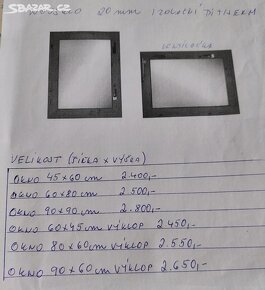 SBAZAR.CZ
20 mm IZOLAČNÍ DITHERM
VENTILAČKA
VELIKOST (ŠÍŘKA x VÝŠKA)
OKNO 45x60 cm 2.400,-
OKNO 60x80 cm 2.500,-
OKNO 90x90 cm 2.800,-
OKNO 60x45 cm VÝKLOP 2450,-
OKNO 80x60 cm VÝKLOP 2.550,-
OKNO 90x60 cm VÝKLOP 2.650,-